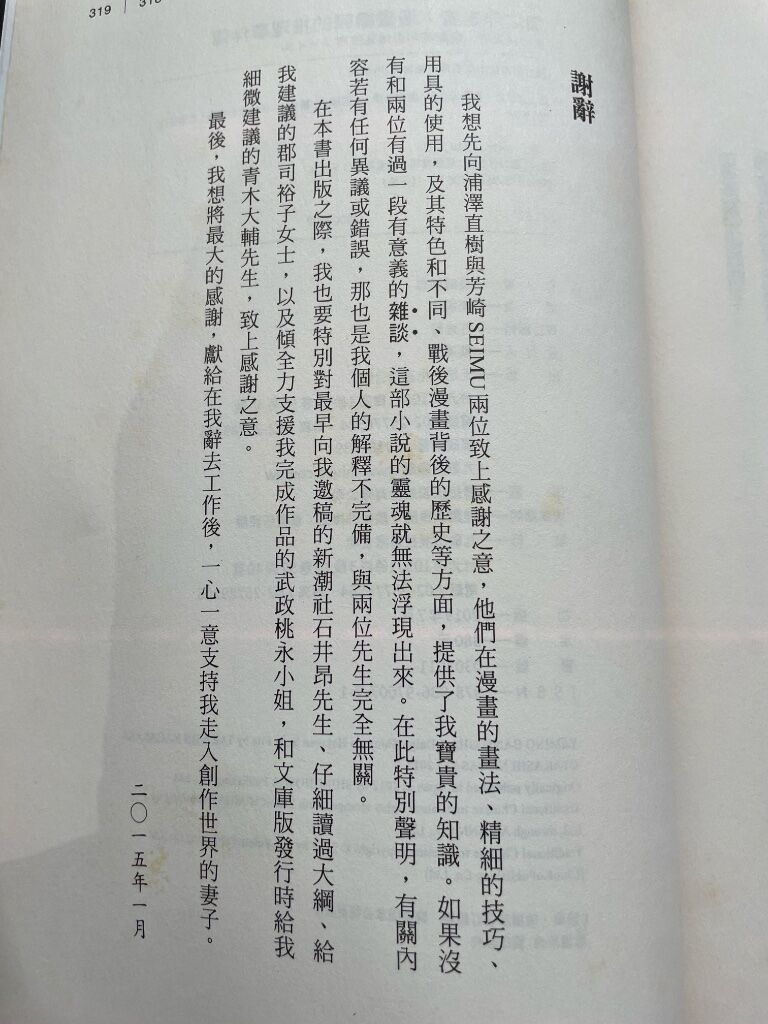 319
謝辭
我想先向浦澤直樹與芳崎SEIMU兩位致上感謝之意，他們在漫畫的畫法、精細的技巧、
用具的使用，及其特色和不同、戰後漫畫背後的歷史等方面，提供了我寶貴的知識。如果沒
有和兩位有過一段有意義的雜談，這部小說的靈魂就無法浮現出來。在此特別聲明，有關內
容若有任何異議或錯誤，那也是我個人的解釋不完備，與兩位先生完全無關。
在本書出版之際，我也要特別對最早向我邀稿的新潮社石井昂先生、仔細讀過大綱、給
我建議的郡司裕子女士，以及傾全力支援我完成作品的武政桃永小姐，和文庫版發行時給我
細微建議的青木大輔先生，致上感謝之意。
最後，我想將最大的感謝，獻給在我辭去工作後，一心一意支持我走入創作世界的妻子。
二〇一五年一月